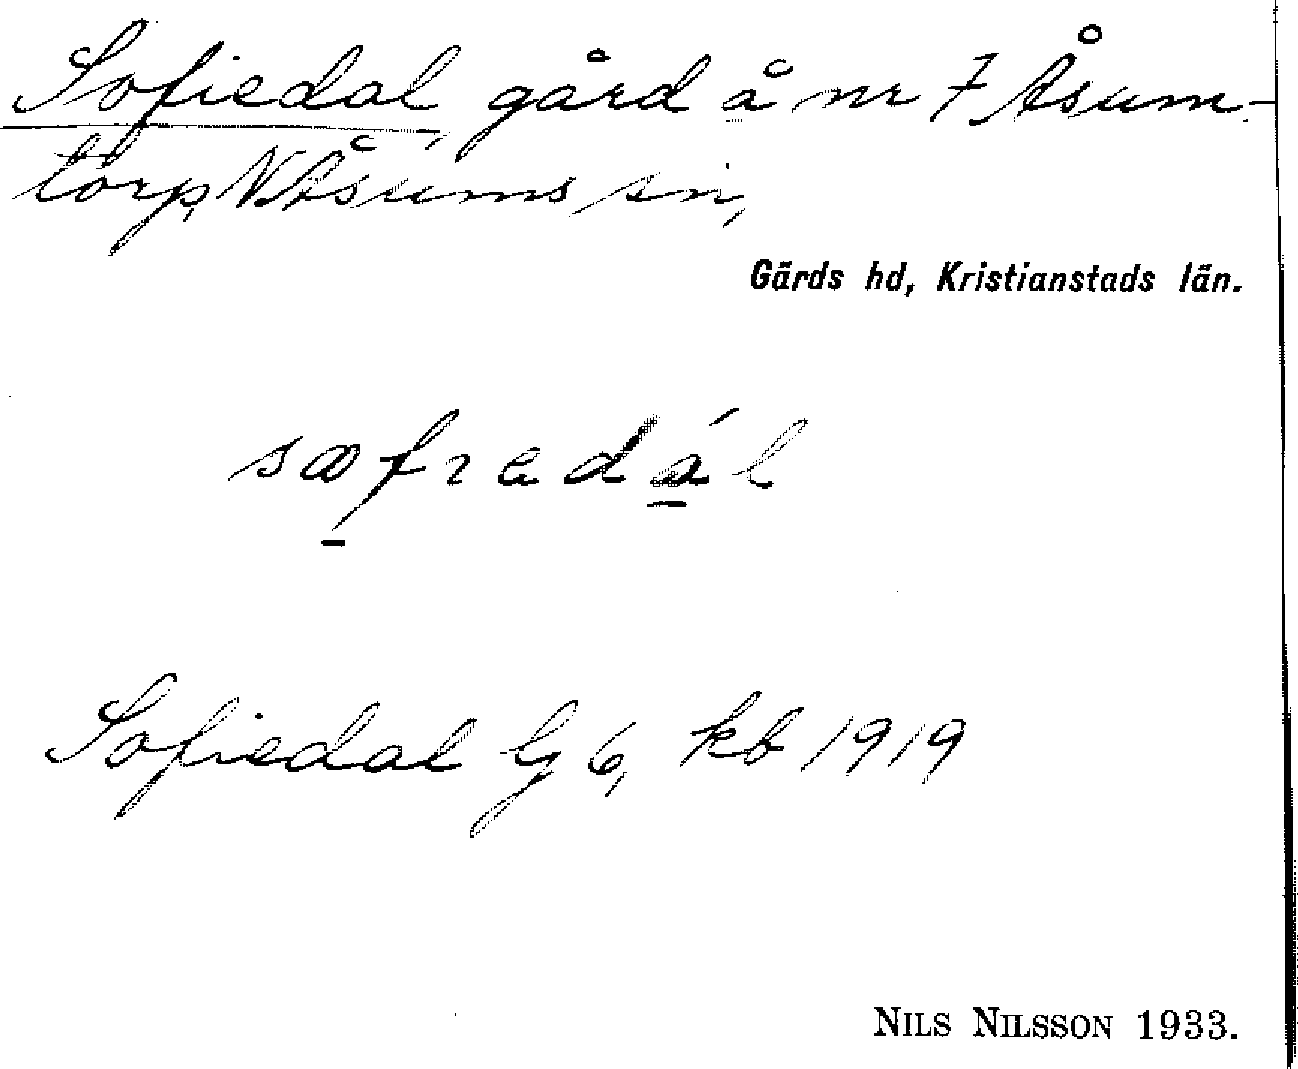 Sofiedal, gård å nr 7 Åsum-
torp, N. Åsums sn,
Gärds hd, Kristianstads län.
Sofiedal lg 6, kb 1919
NILS NILSSON 1933.